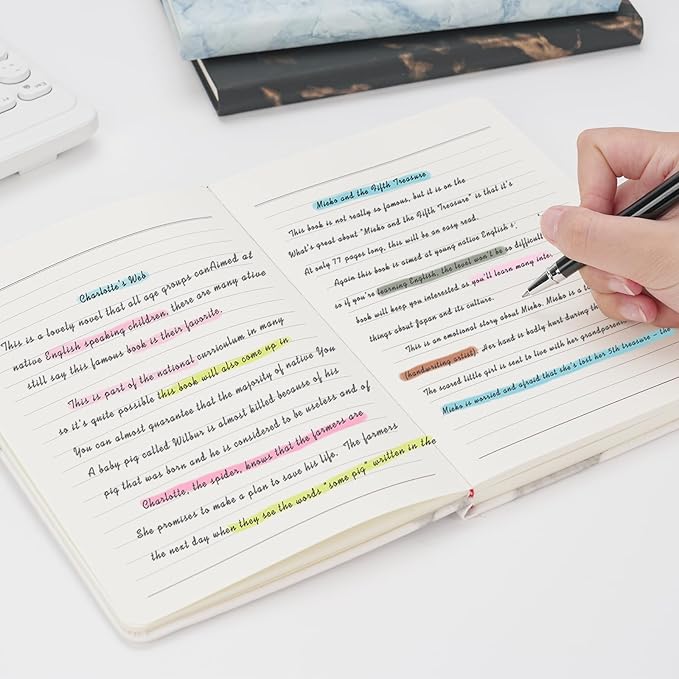 Charlotte's Web
This is a lovely novel that all age groups canAimed at
native English speaking children, there are many ative
still say this famous book is their favorite.
This is part of the national curriculum in many
so it's quite possible this book will also come up in
You can almost guarantee that the majority of native You
A baby pig called Wilbur is almost killed because of his
pig that was born and he is considered to be useless and of
Charlotte, the spider, knows that the farmers are
She promises to make a plan to save his life. The farmers
the next day when they see the words "some pig" written in the
Mieko and the Fifth Treasure
This book is not really so famous, but it is on the
What's great about "Mieko and the Fifth Treasure" is that it's
At only 77 pages long, this will be an easy read.
Again this book is aimed at young native English
so if you're learning English, the level won't be so difficult
book will keep you interested as you'll learn many inte
things about Japan and its culture.
This is an emotional story about Mieko. Mieko is a
(handwriting artist). Her hand is badly hurt during the
The scared little girl is sent to live with her grandparents
Mieko is worried and afraid that she's lost her 5th treasure - the